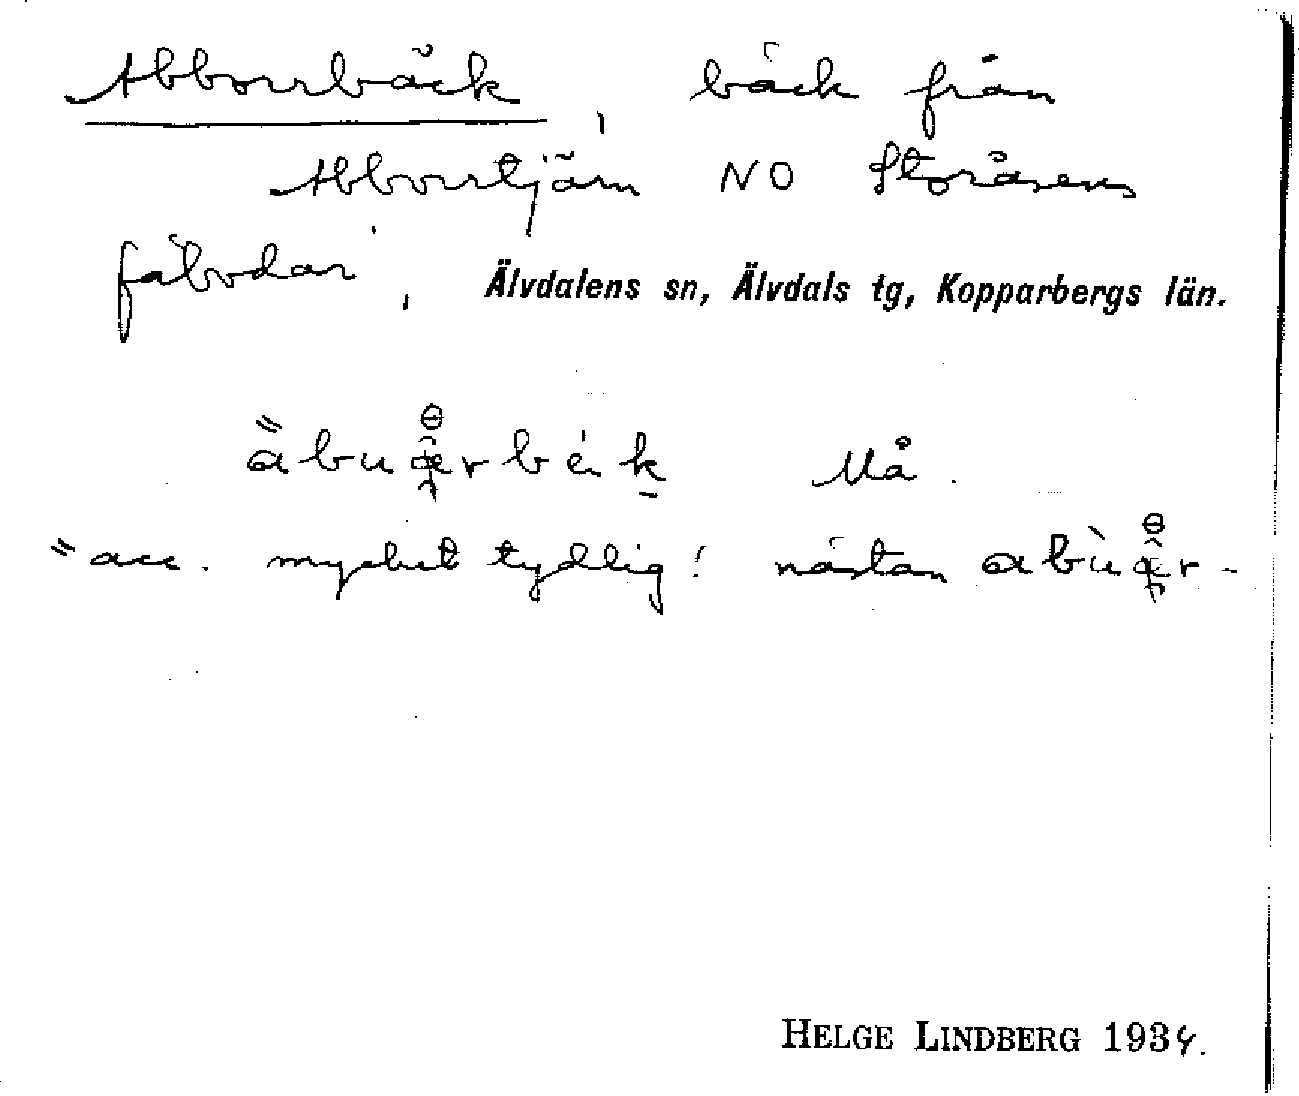 Abborrbäck, bäck från
Abborrtjärn NO Storåsens
fäbodar, Älvdalens sn, Älvdals tg, Kopparbergs län.
Må.
" acc. mycket tydlig! nästan
HELGE LINDBERG 1934.